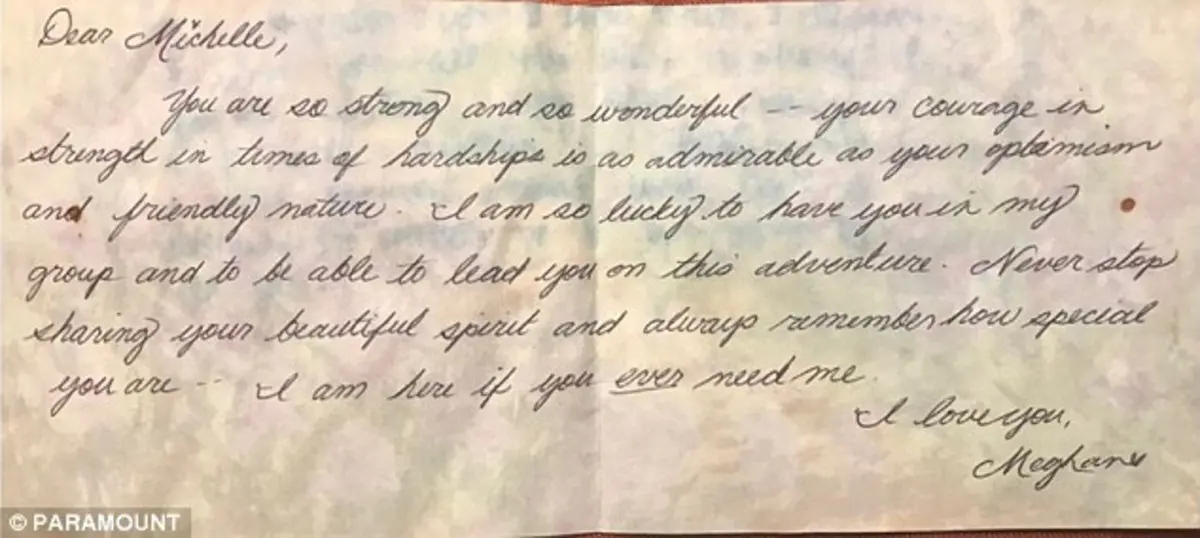 Dear Michelle,
You are so strong and so wonderful -- your courage in
strength in times of hardships is as admirable as your optimism
and friendly nature. I am so lucky to have you in my
group and to be able to lead you on this adventure. Never stop
sharing your beautiful spirit and always remember how special
you are -- I am here if you ever need me.
I love you,
Meghan
© PARAMOUNT